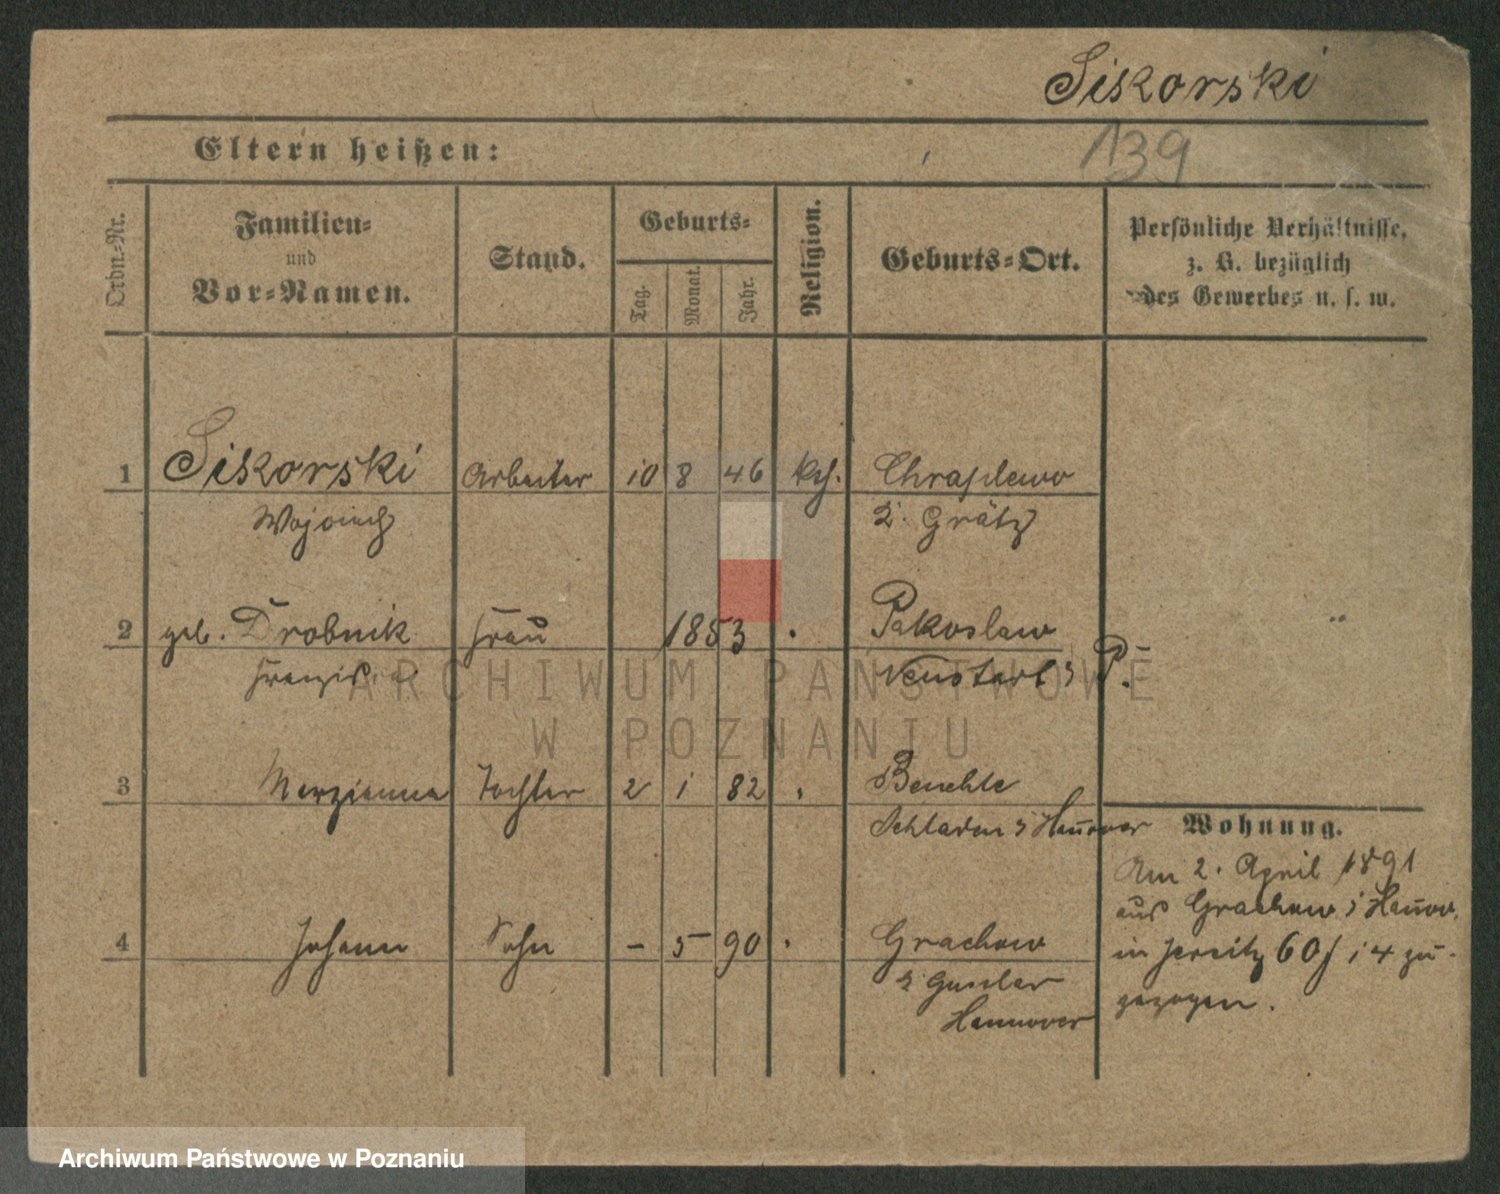 Sikorski
139
Eltern heißen:
Ordn.-Nr.
Familien-
und
Vor-Namen.
Stand.
Geburts-
Tag.
Monat.
Jahr.
Religion.
Geburts-Ort.
Persönliche Verhältnisse,
z. B. bezüglich
des Gewerbes u. s. w.
1 Sikorski Arbeiter 10 8 46 kth.
Wojciech Grätz
2 geb. Drobnik Frau 1853 Pakoslaw
3 Marzianna Tochter 2 1 82
Schladen Hannover
Wohnung.
Am 2. April 1891
aus Grachow Hannov.
4 Johann Sohn – 5 90 Grachow
in Jersitz 60 zu-
gezogen.
Hannover
ARCHIWUM PAŃSTWOWE
W POZNANIU
Archiwum Państwowe w Poznaniu